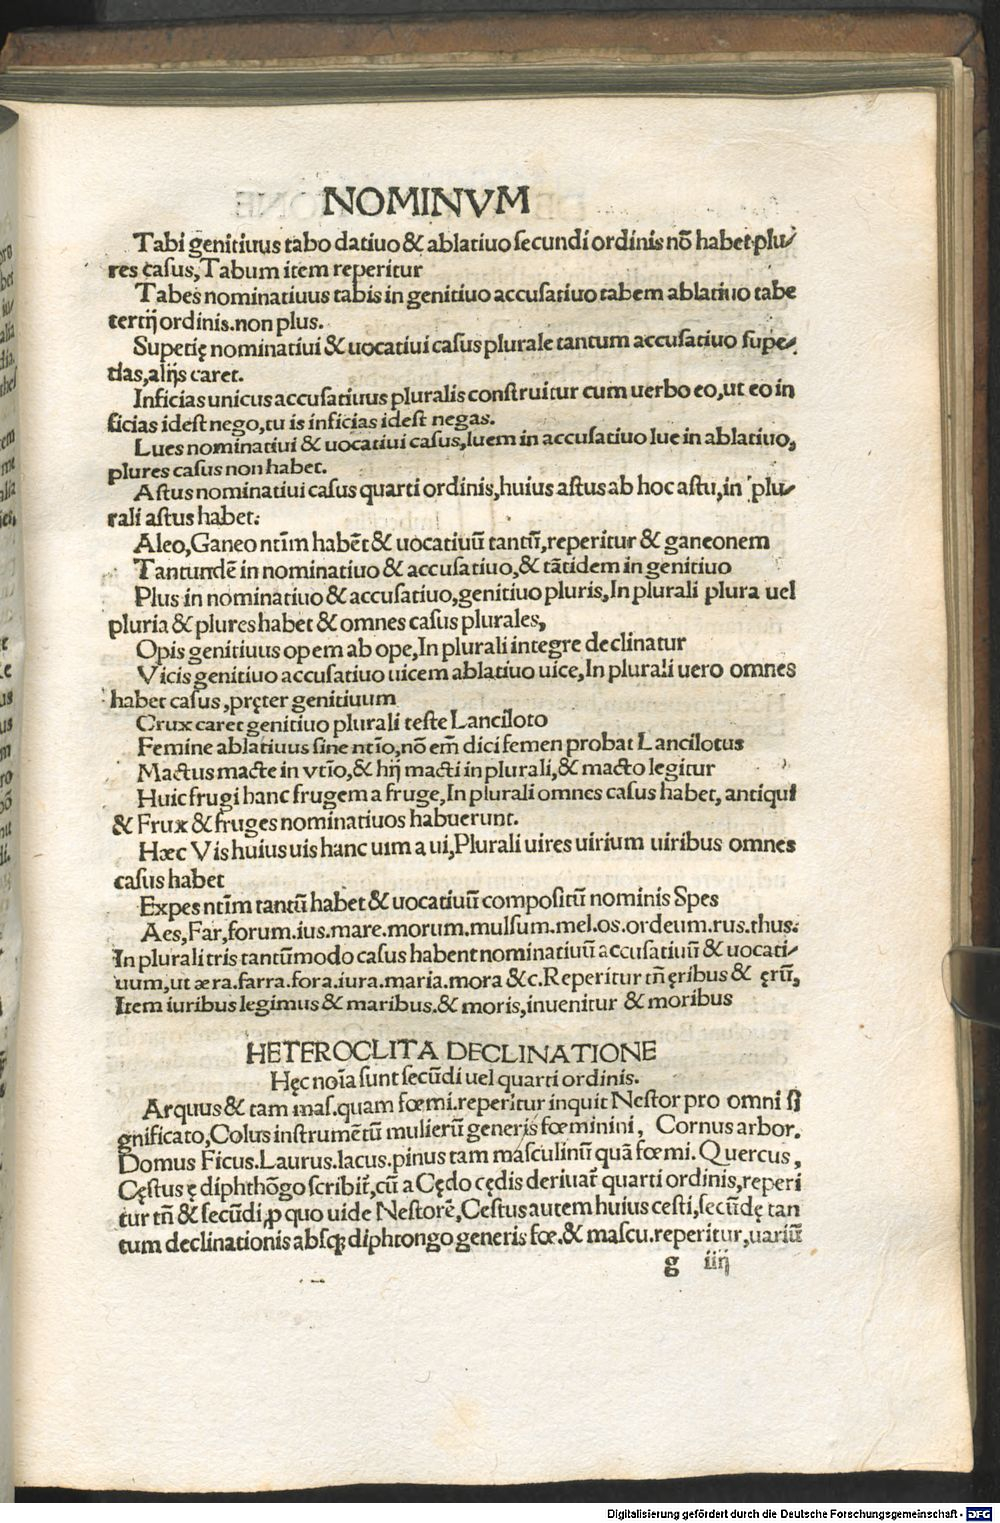 NOMINVM
Tabi genitiuus tabo datiuo & ablatiuo secundi ordinis nō habet plu⸗
res casus, Tabum item reperitur
Tabes nominatiuus tabis in genitiuo accusatiuo tabem ablatiuo tabe
tertij ordinis.non plus.
Supetię nominatiui & uocatiui casus plurale tantum accusatiuo supe⸗
tias,alijs caret.
Inficias unicus accusatiuus pluralis construitur cum uerbo eo,ut eo in
ficias idest nego,tu is inficias idest negas.
Lues nominatiui & uocatiui casus,luem in accusatiuo lue in ablatiuo,
plures casus non habet.
Astus nominatiui casus quarti ordinis,huius astus ab hoc astu,in plu⸗
rali astus habet.
Aleo,Ganeo ntīm habēt & uocatiuū tantū,reperitur & ganeonem
Tantundē in nominatiuo & accusatiuo,& tātidem in genitiuo
Plus in nominatiuo & accusatiuo,genitiuo pluris,In plurali plura uel
pluria & plures habet & omnes casus plurales,
Opis genitiuus opem ab ope,In plurali integre declinatur
Vicis genitiuo accusatiuo uicem ablatiuo uice,In plurali uero omnes
habet casus,pręter genitiuum
Crux caret genitiuo plurali teste Lanciloto
Femine ablatiuus sine ntīo,nō em̄ dici femen probat Lancilotus
Mactus macte in vtīo,& hij macti in plurali,& macto legitur
Huic frugi hanc frugem a fruge,In plurali omnes casus habet, antiqui
& Frux & fruges nominatiuos habuerunt.
Hæc Vis huius uis hanc uim a ui,Plurali uires uirium uiribus omnes
casus habet
Expes ntīm tantū habet & uocatiuū compositū nominis Spes
Aes,Far,forum.ius.mare.morum.mulsum.mel.os.ordeum.rus.thus.
In plurali tris tantūmodo casus habent nominatiuū accusatiuū & uocati⸗
uum,ut æra.farra.fora.iura.maria.mora &c.Reperitur tn̄ ęribus & ęrū,
Item iuribus legimus & maribus.& moris,inuenitur & moribus
HETEROCLITA DECLINATIONE
Hęc noīa sunt secūdi uel quarti ordinis.
Arquus & tam mas.quam fœmi.reperitur inquit Nestor pro omni si
gnificato,Colus instrumētū mulierū generis fœminini, Cornus arbor.
Domus Ficus.Laurus.lacus.pinus tam masculinū quā fœmi. Quercus,
Cęstus ę diphthōgo scribit᷑,cū a Cędo cędis deriuat᷑ quarti ordinis,reperi
tur tn̄ & secūdi,ꝓ quo uide Nestorē,Cestus autem huius cesti,secūdę tan
tum declinationis absqꝫ diphtongo generis fœ.& mascu.reperitur,uariū
g iiij
Digitalisierung gefördert durch die Deutsche Forschungsgemeinschaft - DFG